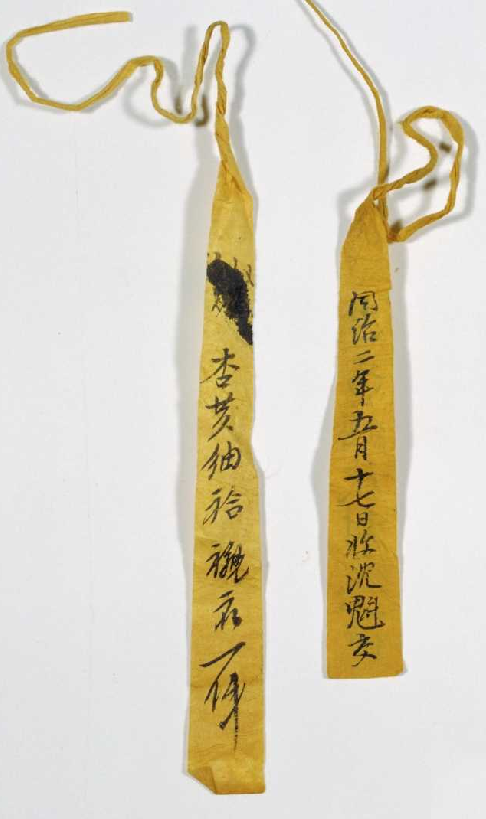 同治二年五月十七日收沈魁交
杏黄紬袷襯衣一件